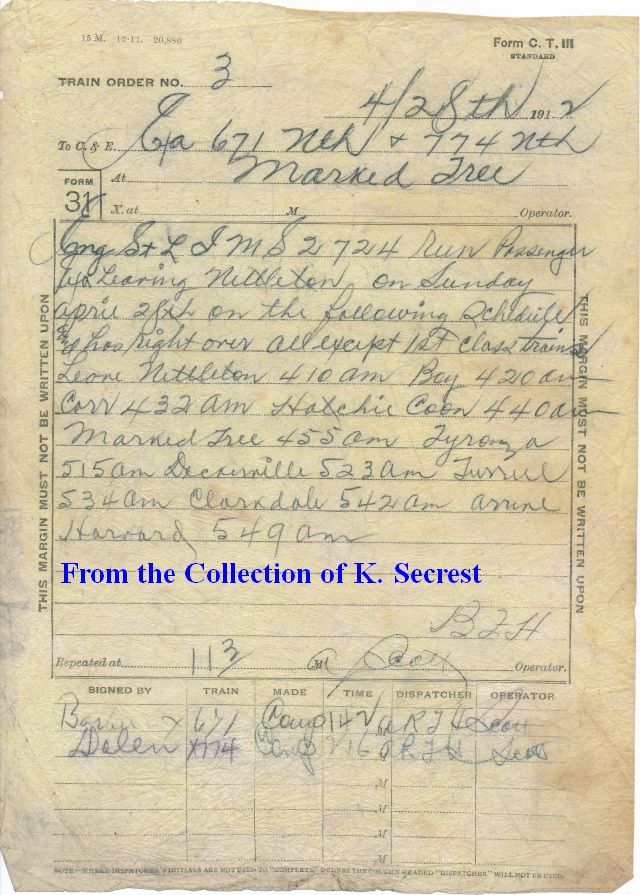 15 M. 12-11. 20,880
Form C. T. 111
STANDARD
TRAIN ORDER NO. 3
4/28th 1912
To C. & E. Exa 671 Nth & 774 Nth
At Marked Tree
FORM
31
X. at M Operator.
Eng St L I M S 2724 Run Passenger
Exa Leaving Nettleton on Sunday
april 28th on the following Schedule
& has right over all except 1st class trains
Leave Nettleton 410 am Bay 420 am
Carr 432 am Hatchie Coon 440 am
Marked Tree 455 am Tyronza
515 am Deckerville 523 am Turrell
534 am Clarkdale 542 am arrive
Harvard 549 am
THIS MARGIN MUST NOT BE WRITTEN UPON
THIS MARGIN MUST NOT BE WRITTEN UPON
From the Collection of K. Secrest
Repeated at 113 M Scott Operator.
SIGNED BY TRAIN MADE TIME DISPATCHER OPERATOR
x 671 Comp 142 a Scott
Dolen x 774 Comp 216 a Scott
M
M
M
M
NOTE—WHERE DISPATCHER'S INITIALS ARE NOT USED TO "COMPLETE" ORDERS THE COLUMN HEADED "DISPATCHER" WILL NOT BE USED.